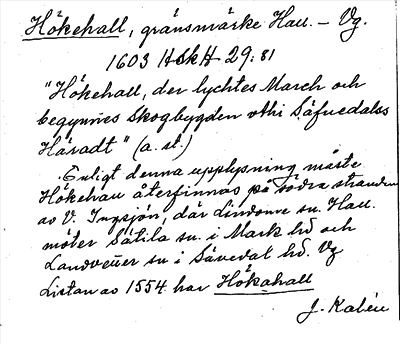 Hökehall, gränsmärke Hall. – Vg.
1603 HSkH 29:81
"Hökehall, der lychtes March och
begynnes Skogbygden vthi Säfuedalss
Häradt" (a. st.)
Enligt denna upplysning måste
Hökehall återfinnas på södra stranden
av V. Ingsjön, där Lindome sn. Hall.
möter Sätila sn. i Mark hd och
Landvetter sn i Sävedal hd. Vg
Listan av 1554 har Hökahall
J. Kalén